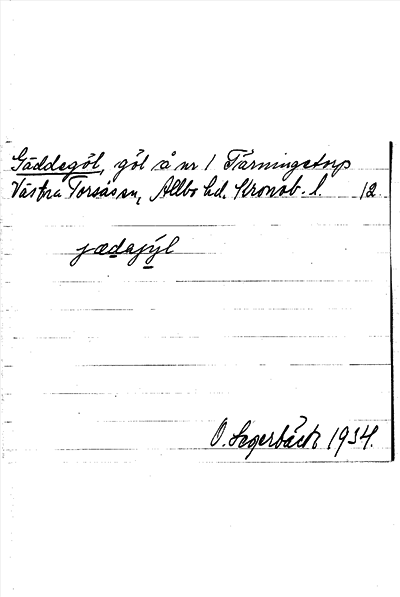 Gäddegöl, göl å nr 1 Tärningstorp
Västra Torsås sn, Allbo hd. Kronob. l. 12
jædajýl
O. Segerbäck 1934.